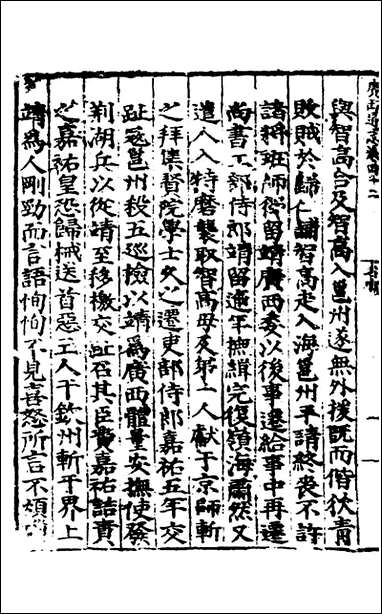 與智高合及智高入邕州遂無外援既而偕狄青
敗賊於歸仁鋪智高走入海邕州平請終喪不許
諸將班師從留靖廣西委以後事遷給事中再遷
尚書工部侍郎靖留逾年撫緝完復嶺海肅然又
遣人入特磨襲取智高母及弟一人獻于京師斬
之拜集賢院學士久之遷吏部侍郎嘉祐五年交
趾寇邕州殺五巡檢以靖為廣西體量安撫使發
荆湖兵以從靖至移檄交趾召其臣費嘉祐詰責
之嘉祐皇恐歸械送首惡五人于欽州斬于界上
靖為人剛勁而言語恂恂不見喜怒所言不煩